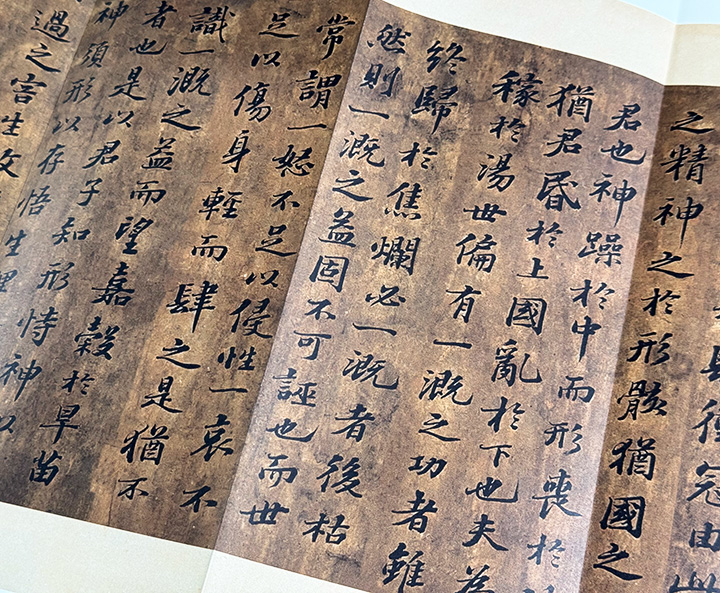 冠由
之精神之於形骸猶國之
君也神躁於中而形喪於
猶君昏於上國亂於下也夫為
稼於湯世偏有一溉之功者雖
終歸於焦爛必一溉者後枯
然則一溉之益固不可誣也而世
常謂一怒不足以侵性一哀不
足以傷身輕而肆之是猶不
識一溉之益而望嘉穀於旱苗
者也是以君子知形恃神以
神須形以存悟生理
過之害生故